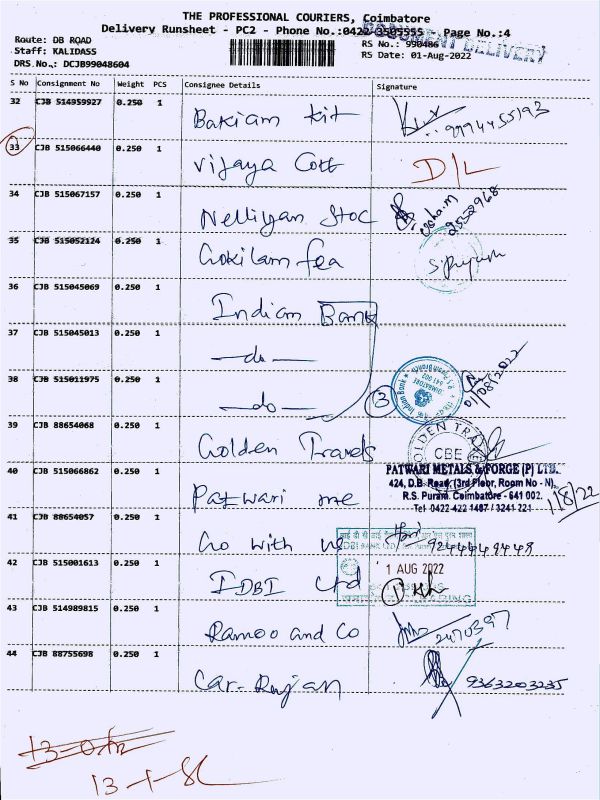 THE PROFESSIONAL COURIERS, Coimbatore
Delivery Runsheet - PC2 - Phone No.:0422-3505555 Page No.:4
DOCUMENT DELIVERY
Route: DB ROAD
Staff: KALIDASS
DRS.No.: DCJB99048604
RS No.: 990486
RS Date: 01-Aug-2022
S No Consignment No Weight PCS Consignee Details Signature
32 CJB 514959927 0.250 1
Bakiam kit
33 CJB 515066440 0.250 1
Vijaya Cott D/L
34 CJB 515067157 0.250 1
Nelliyan Stoc
35 CJB 515052124 0.250 1
Gokilam fea
36 CJB 515045069 0.250 1
Indian Bank
37 CJB 515045013 0.250 1
—do—
38 CJB 515011975 0.250 1
—do— 3 01/08/2022
Indian Bank
39 CJB 88654068 0.250 1
Golden Travels
GOLDEN TRA
CBE
40 CJB 515066862 0.250 1
Patwari me
PATWARI METALS & FORGE (P) LTD.
424, D.B. Road, (3rd Floor, Room No - N),
R.S. Puram, Coimbatore - 641 002.
Tel 0422 422 1487 / 3241 221
1/8/22
41 CJB 88654057 0.250 1
Go with us 9244449448
42 CJB 515001613 0.250 1
IDBI Ltd
1 AUG 2022
43 CJB 514989815 0.250 1
Ramoo and Co 2470397
44 CJB 88755698 0.250 1
Car-Rujan 9363203235